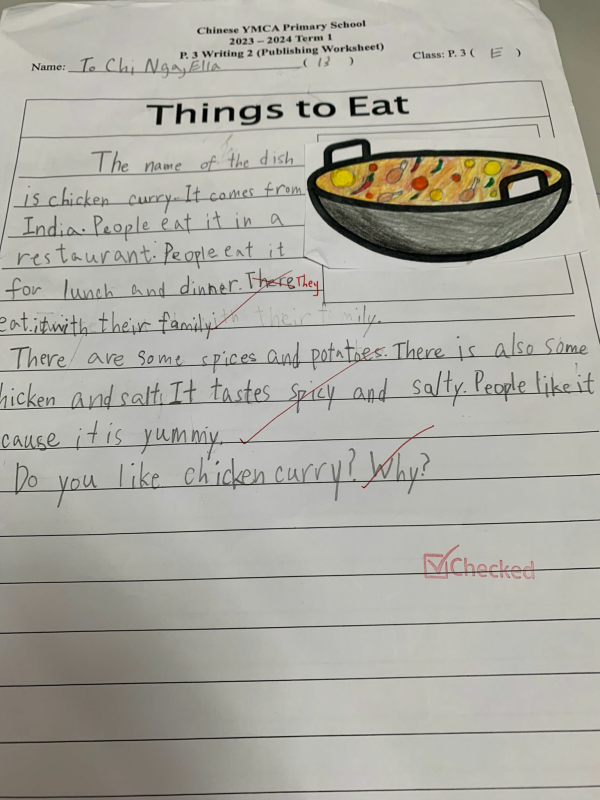 Chinese YMCA Primary School
2023 – 2024 Term 1
P. 3 Writing 2 (Publishing Worksheet)
Name: To Chi Nga, Ella ( 13 ) Class: P. 3 ( E )
Things to Eat
The name of the dish
is chicken curry. It comes from
India. People eat it in a
restaurant. People eat it
for lunch and dinner. There They
eat it with their family with their family.
There are some spices and potatoes. There is also some
hicken and salt. It tastes spicy and salty. People like it
cause it is yummy.
Do you like chicken curry? Why?
Checked